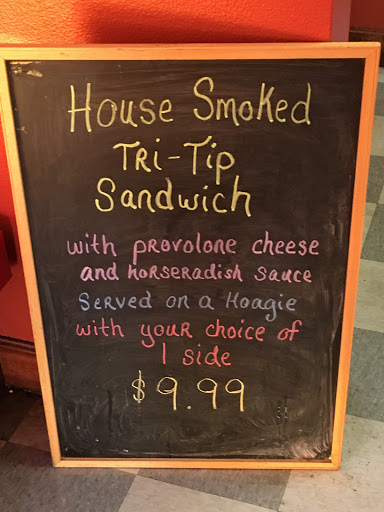 House Smoked
TRi-Tip
Sandwich
with provolone cheese
and horseradish sauce
Served on a Hoagie
with your choice of
1 side
$9.99